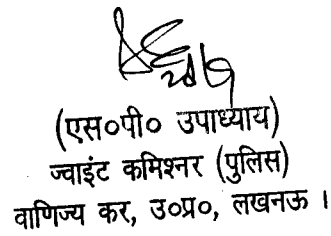 (एस०पी० उपाध्याय)
ज्वाइंट कमिश्नर (पुलिस)
वाणिज्य कर, उ०प्र०, लखनऊ ।